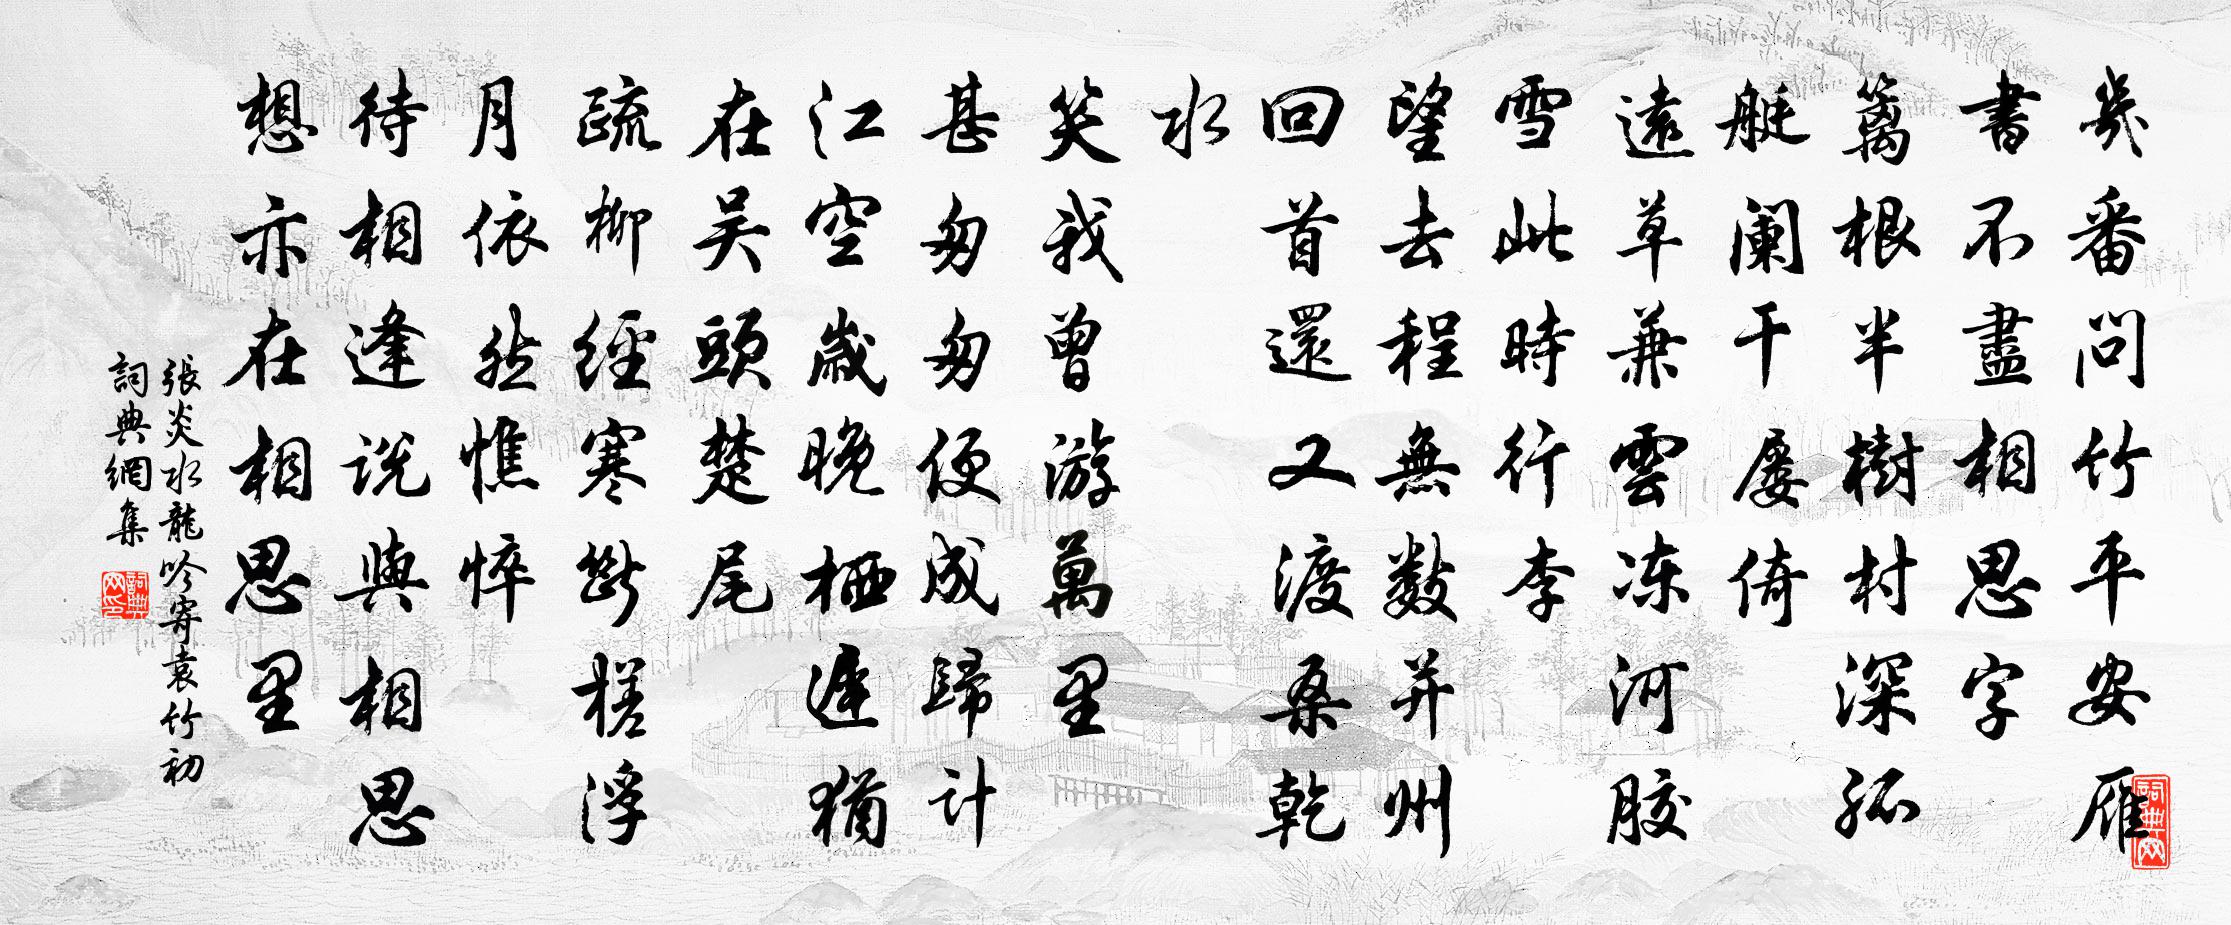 幾番問竹平安雁
書不盡相思字
籬根半樹村深孤
艇闌干屡倚
遠草兼雲凍河膠
雪此時行李
望去程無數并州
回首還又渡桑乾
水
笑我曾游萬里
甚匆匆便成歸計
江空歲晚栖遲猶
在吴頭楚尾
疏柳經寒斷槎浮
月依然憔悴
待相逢說與相思
想亦在相思里
張炎水龍吟寄袁竹初
詞典網集
詞典网
詞典网印